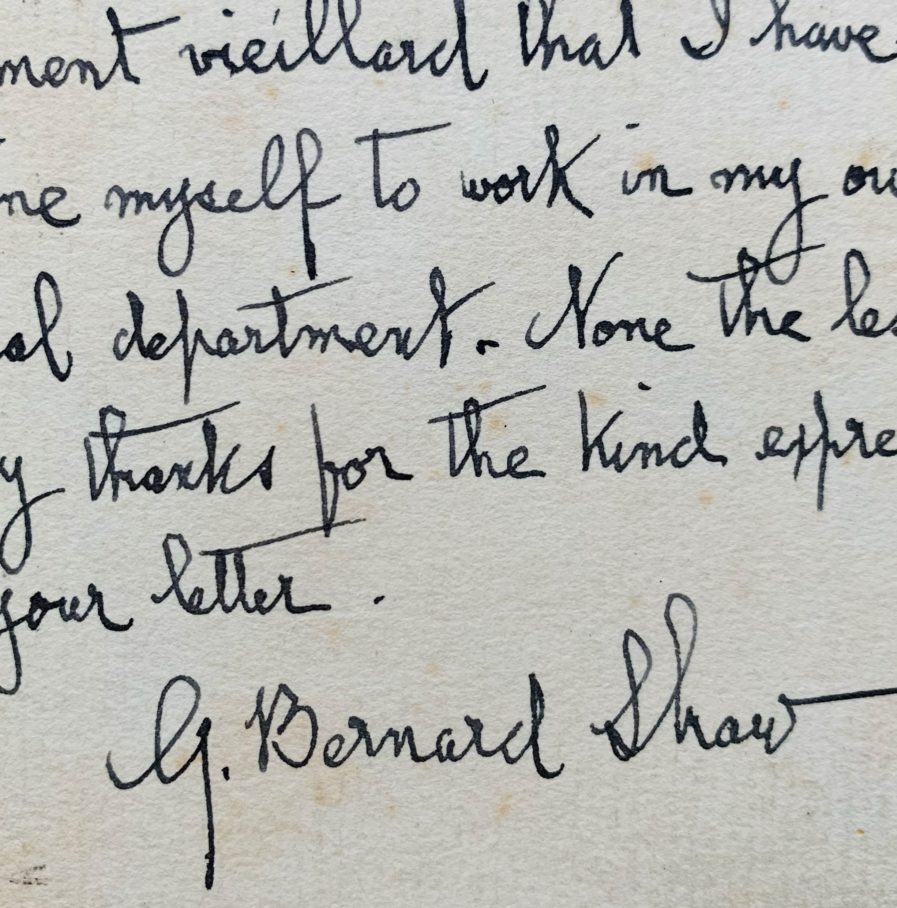 ment vieillard that I have
ne myself to work in my ow
al department. None the les
y thanks for the kind expre
your letter.
G. Bernard Shaw